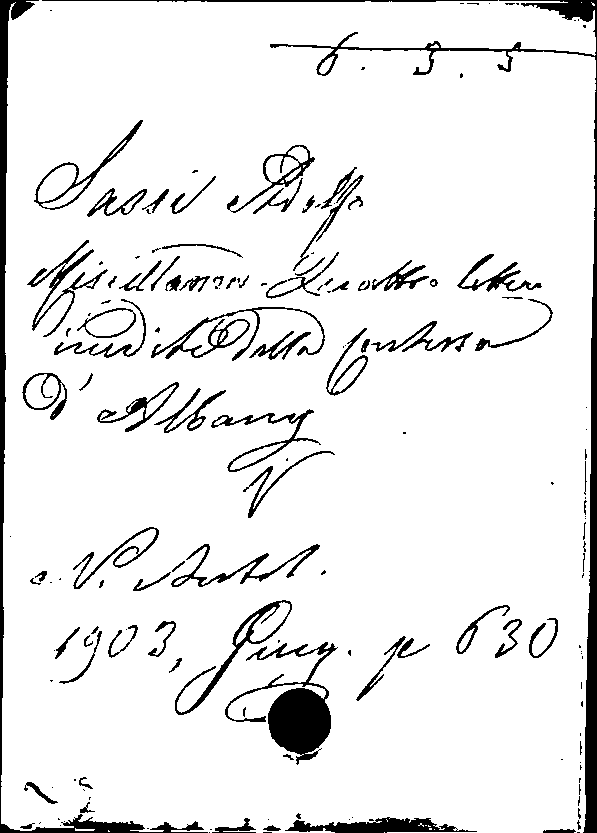 6. 3. 5
Sassi Adolfo
Miscellanea - Quattro lettere
inedite della contessa
d'Albany
V
N. Antol.
1903, Giug. p 630